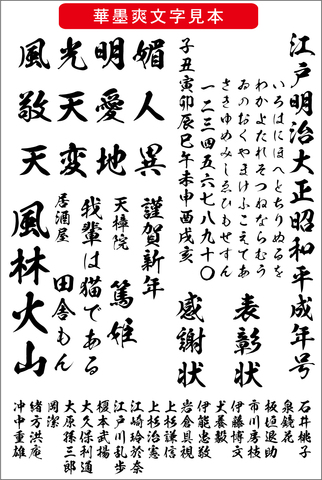 華墨爽文字見本
江戸明治大正昭和平成年号
いろはにほへとちりぬるを
わかよたれそつねならむう
ゐのおくやまけふこえてあ
さきゆめみしゑひもせすん
一二三四五六七八九十〇
子丑寅卯辰巳午未申酉戌亥
表彰状
感謝状
媚人異
明愛地
光天変
風敬天
謹賀新年
天樟院
篤姫
我輩は猫である
居酒屋
田舎もん
風林火山
石井桃子
泉鏡花
板垣退助
市川房枝
伊藤博文
犬養毅
伊能忠敬
岩倉具視
上杉謙信
上杉治憲
江崎玲於奈
江戸川乱歩
榎本武揚
大久保利通
大原孫三郎
岡潔
緒方洪庵
沖中重雄